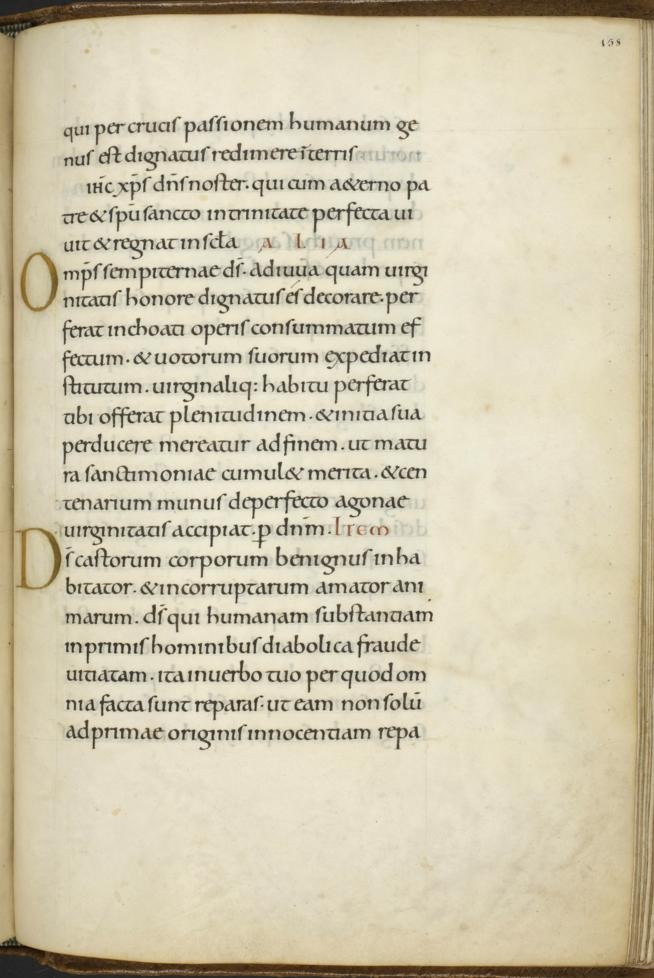 158
qui per crucis passionem humanum ge
nus est dignatus redimere īterris
ihc xp̄s dn̄s noster. qui cum aeterno pa
tre & sp̄u sancto in trinitate perfecta ui
uit & regnat in scła ALIA
Omp̄s sempiternae ds̄. adiuua quam uirgi
nitatis honore dignatus es decorare. per
ferat inchoati operis consummatum ef
fectum. & uotorum suorum expediat in
stitutum. uirginaliq: habitu perferat
tibi offerat plenitudinem. & initia sua
perducere mereatur ad finem. ut matu
ra sanctimoniae cumul& merita. & cen
tenarium munus deperfecto agonae
uirginitatis accipiat. ꝑ dnm̄. Item
Ds̄ castorum corporum benignus inha
bitator. & incorruptarum amator ani
marum. ds̄ qui humanam substantiam
in primis hominibus diabolica fraude
uitiatam. ita in uerbo tuo per quod om
nia facta sunt reparas. ut eam non solū
ad primae originis innocentiam repa